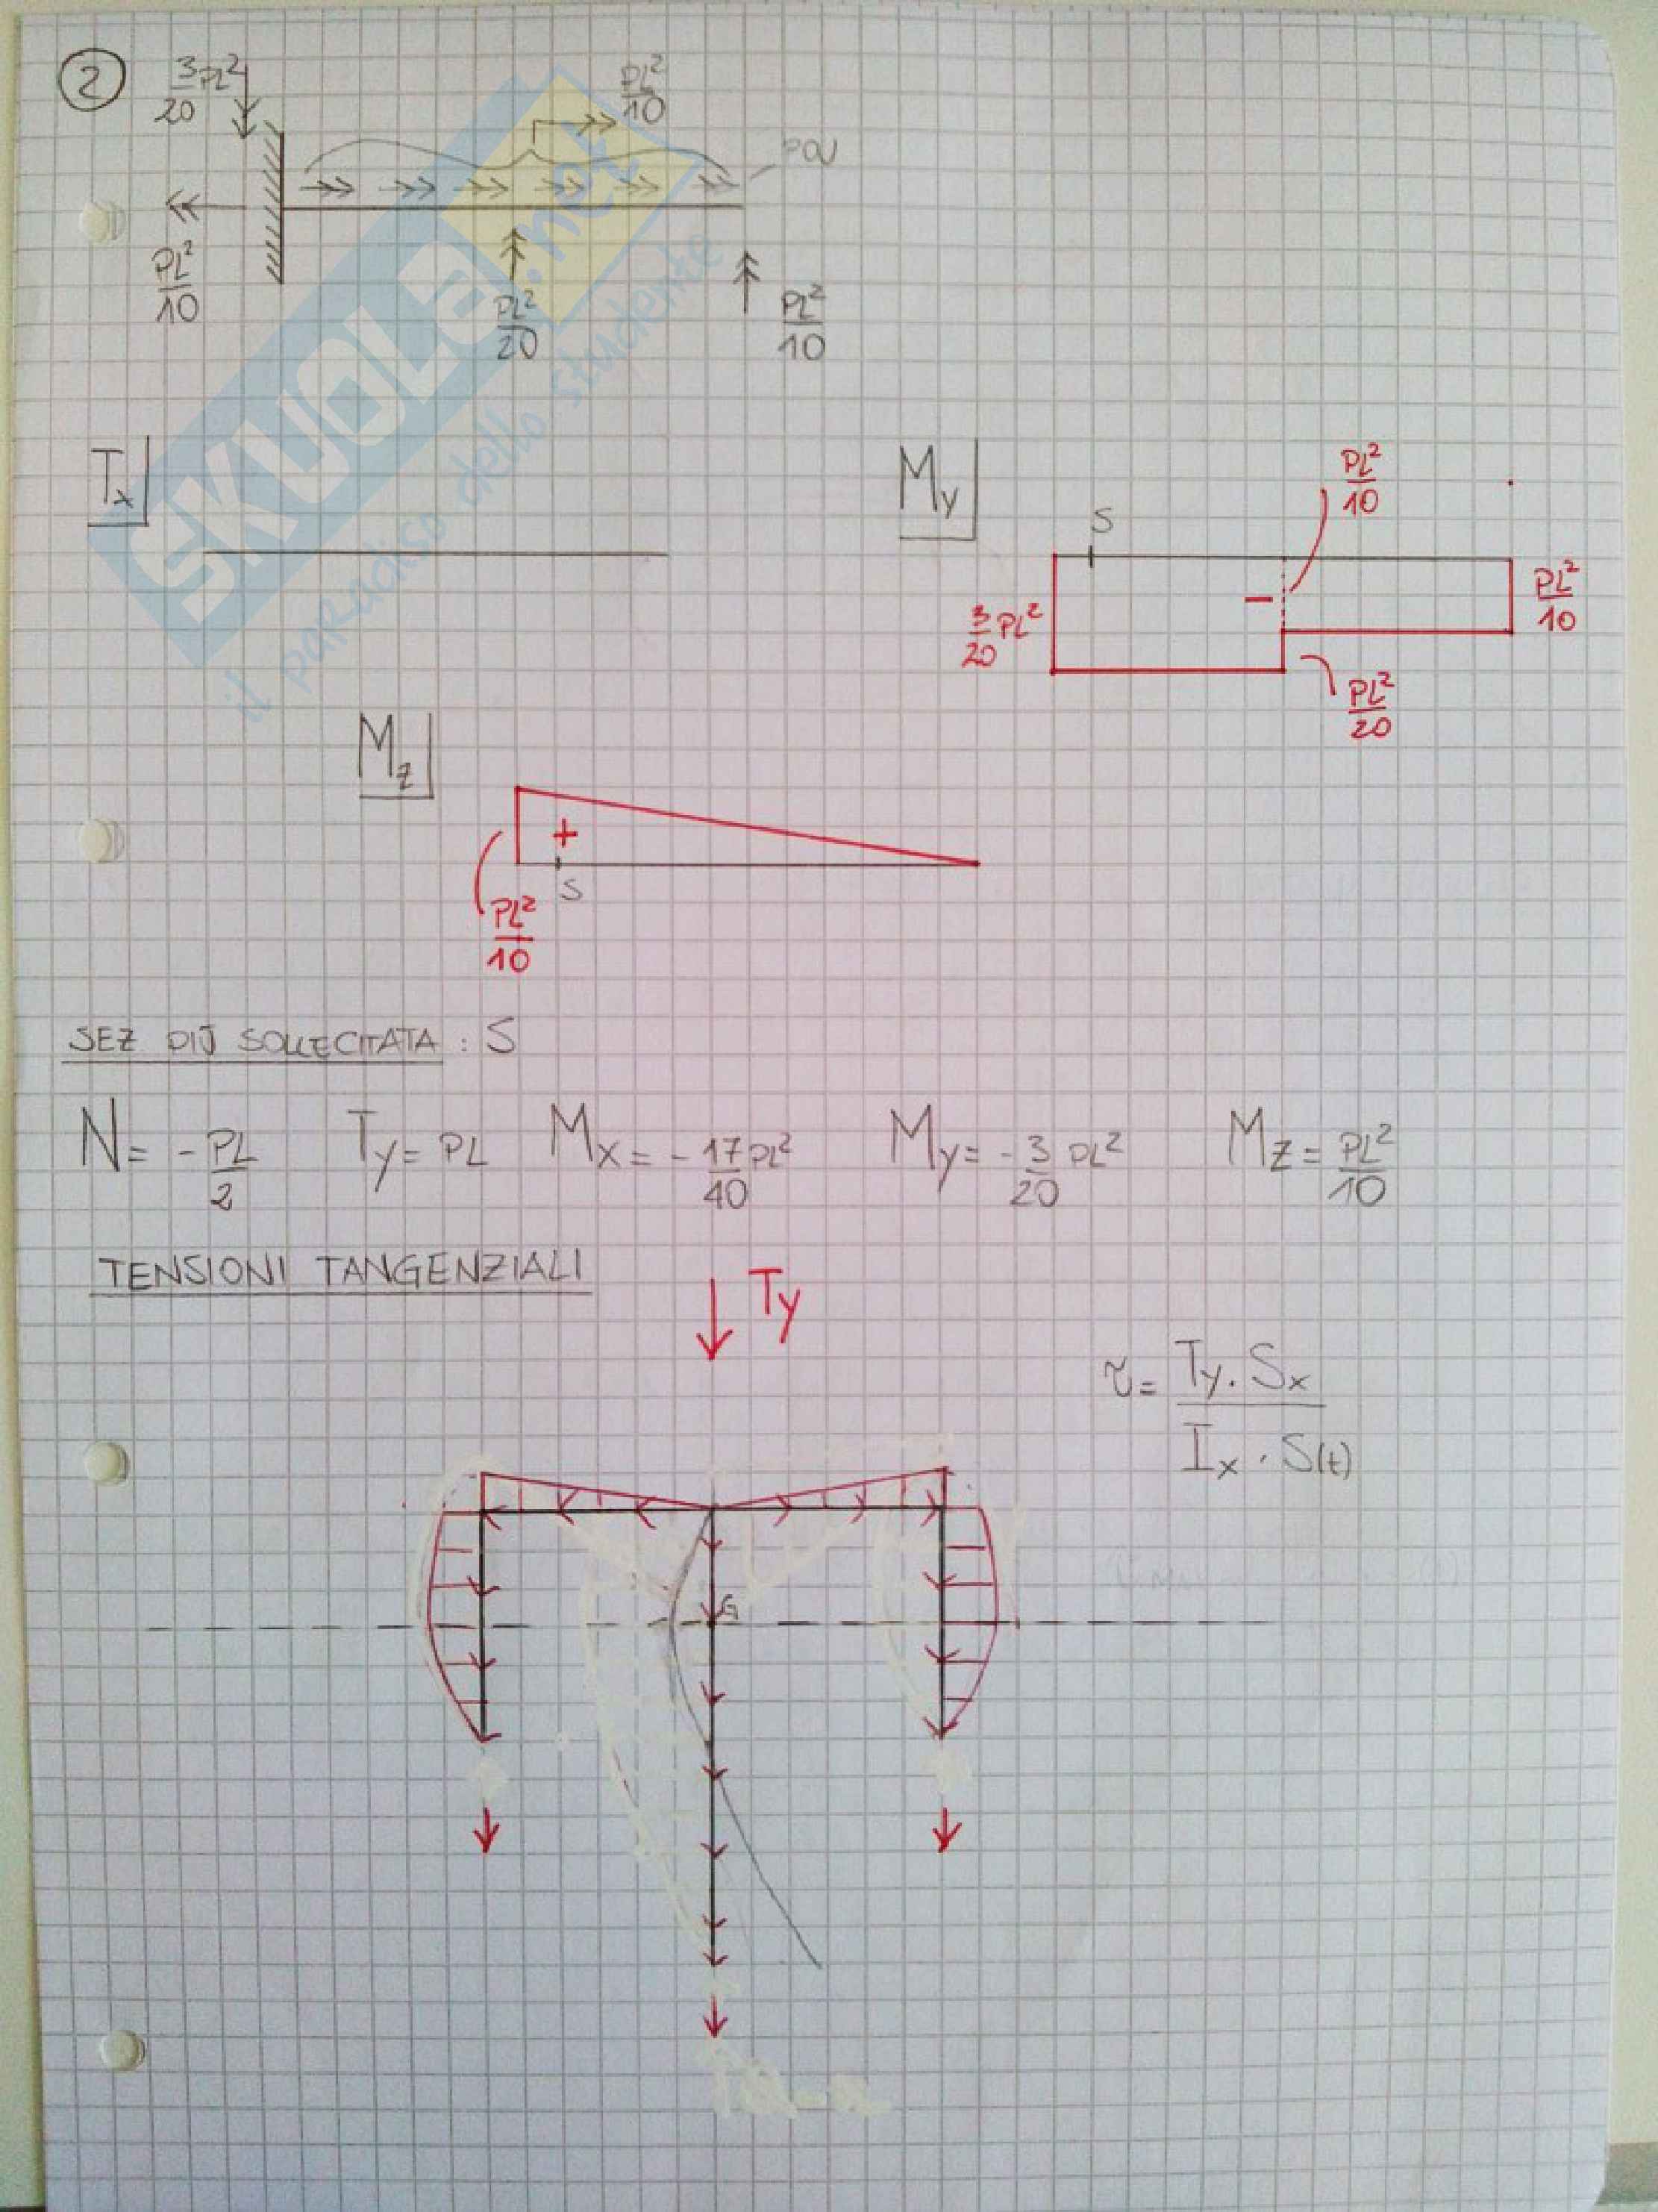 2
3/20 PL²
PL²/10
PL²/10
PL²/20
PL²/10
SKUOLA.net
il paradiso dello studente
Tx
My
S
PL²/10
PL²/10
3/20 PL²
-
PL²/20
Mz
+
S
PL²/10
SEZ PIÙ SOLLECITATA : S
N = - PL/2 Ty = PL Mx = - 17/40 PL² My = - 3/20 PL² Mz = PL²/10
TENSIONI TANGENZIALI
Ty
τ = Ty · Sx / Ix · S(t)
G